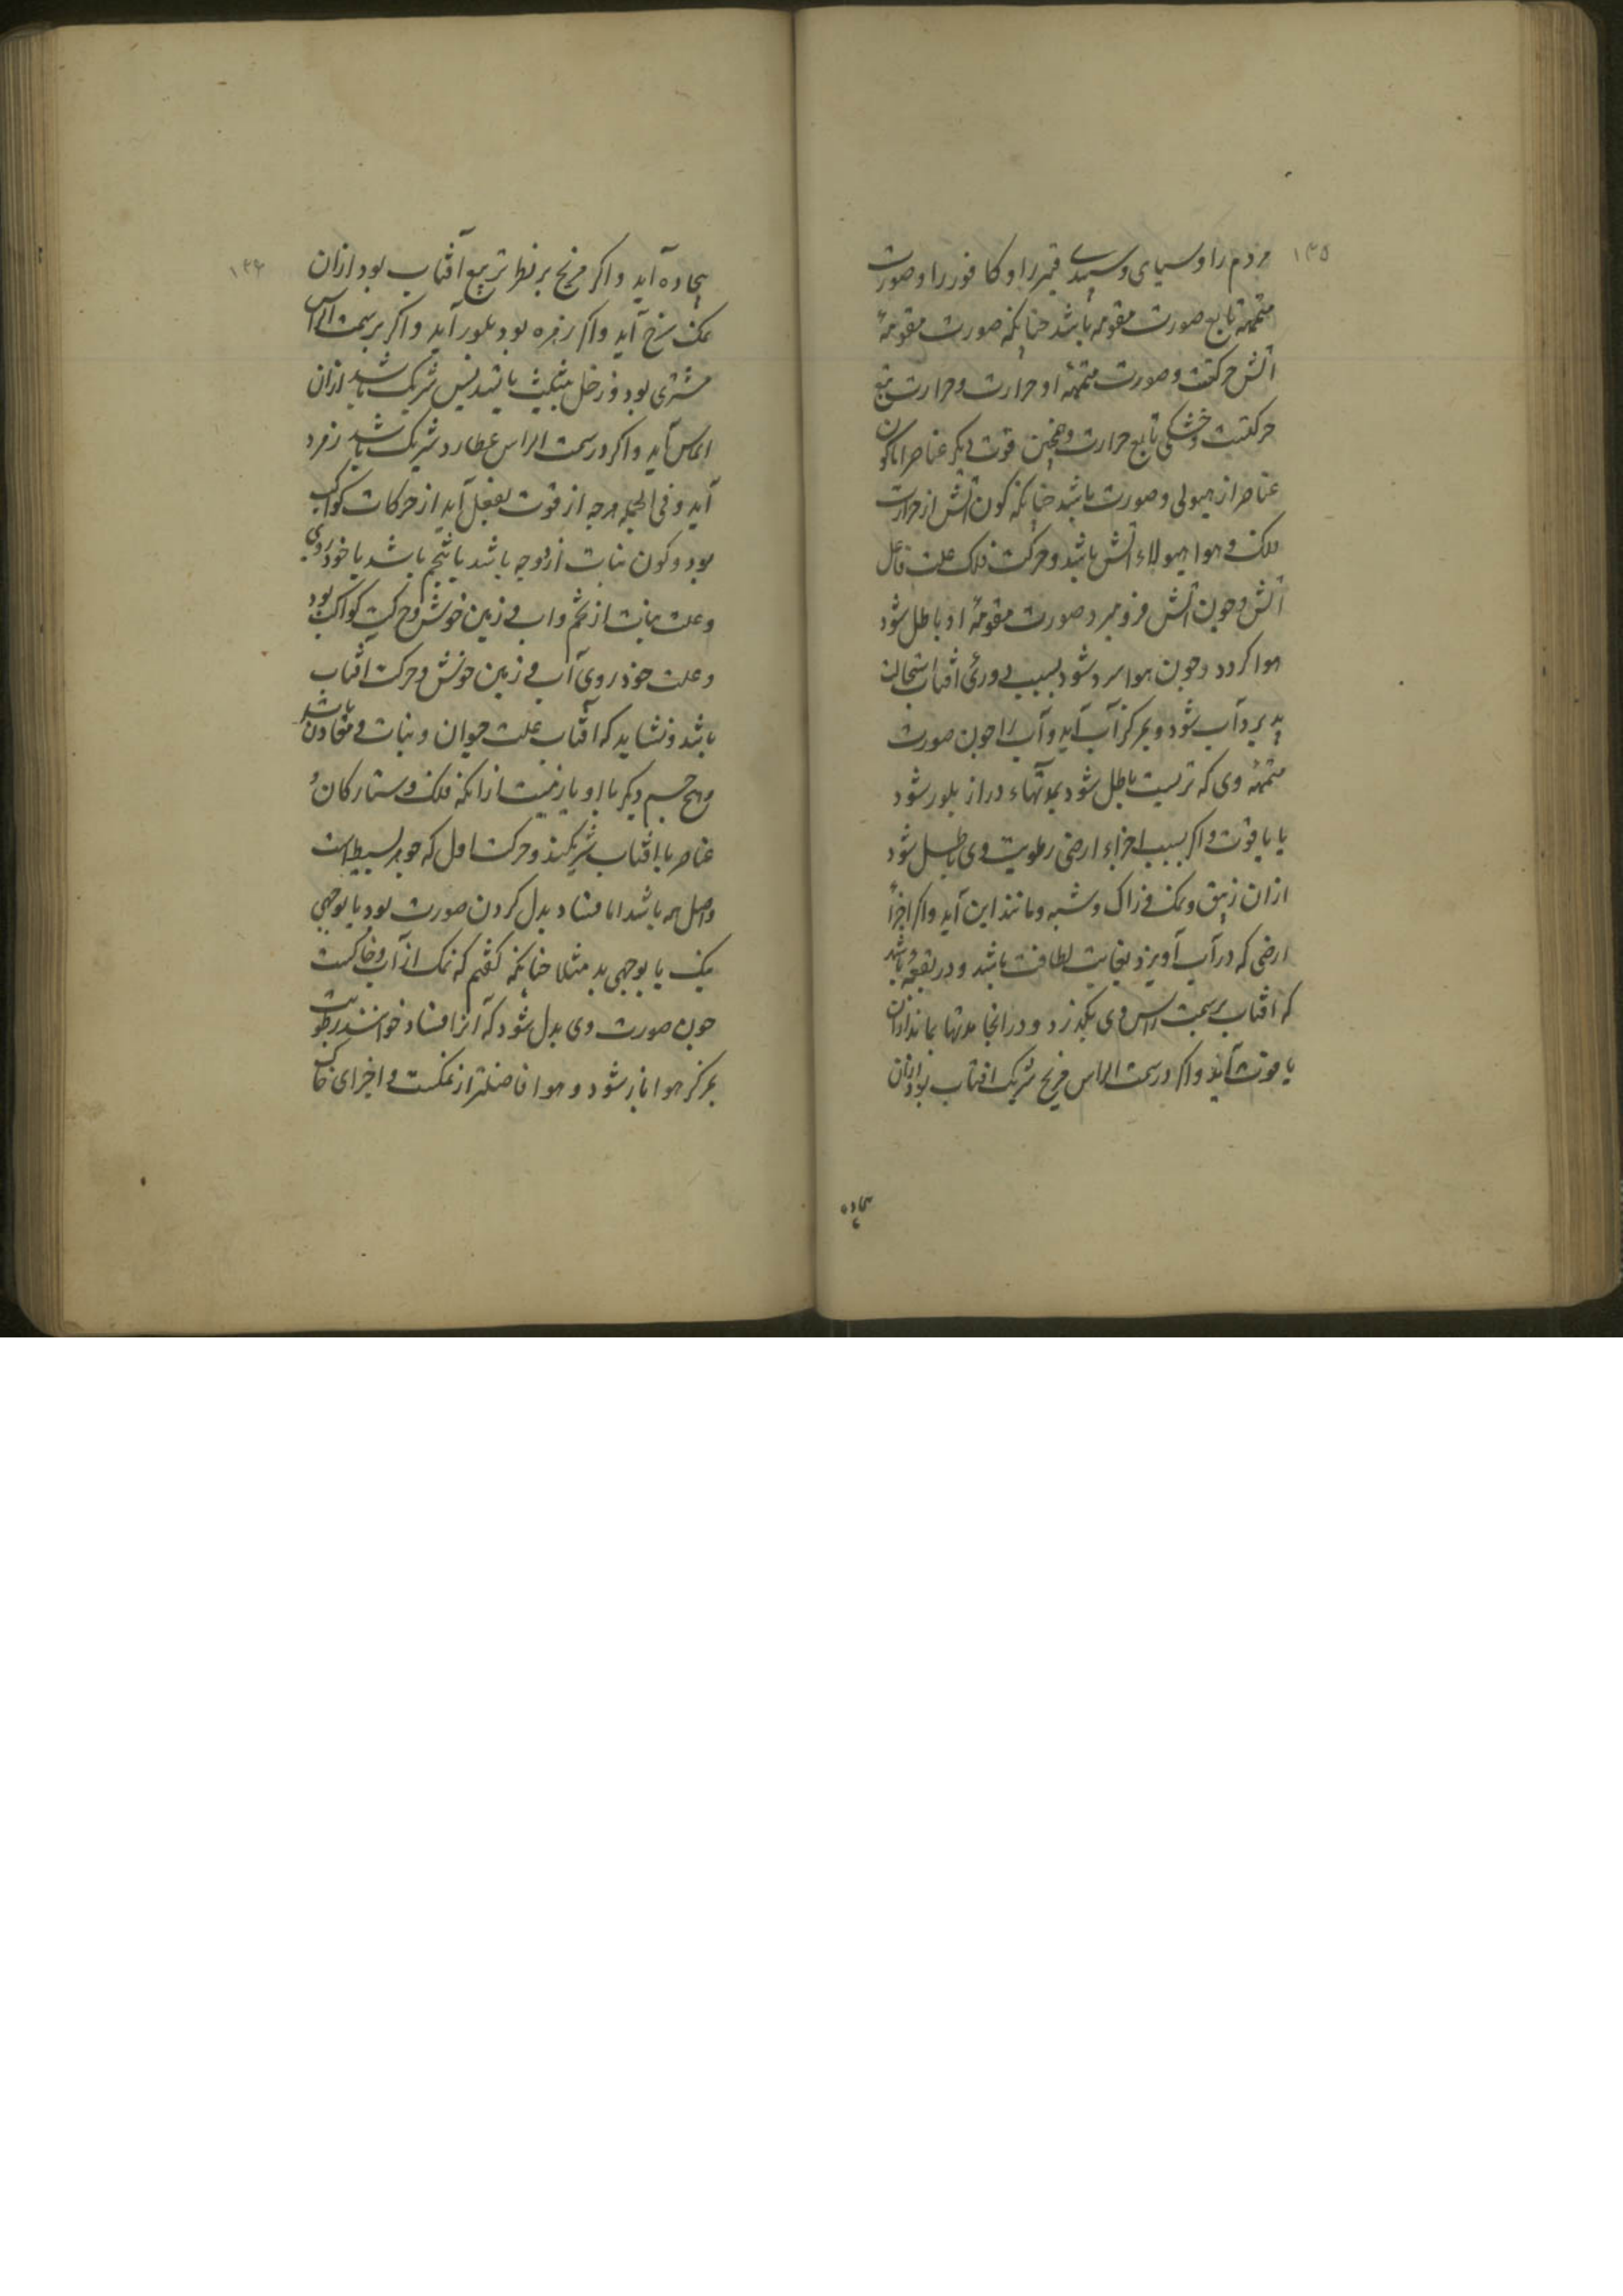 ۱۳۵
مردم را و سیاهی و سپیدی قیر را و کافور را و صورت
متممه تابع صورت مقومه باشد چنانکه صورت مقومهٔ
آتش حرکتست و صورت متممهٔ او حرارت و حرارت تبع
حرکتست و خشکی تابع حرارت و همچنین قوت دیگر عناصر اما کون
عناصر از هیولی و صورت باشد چنانکه کون آتش از حرارت
فلک و هوا هیولاء آتش باشد و حرکت فلک علت فاعل
آتش و چون آتش فرو میرد صورت مقومهٔ او باطل شود
هوا گردد و چون هوا سرد شود بسبب دورئ آفتاب استحالت
پذیرد آب شود و بمرکز آب آید و آب را چون صورت
متممهٔ وی که تریست باطل شود بمدتهاء دراز بلور شود
یا یاقوت و اگر بسبب اجزاء ارضی رطوبت وی باطل شود
ازان زیبق و نمک و زاک و شبه و مانند این آید و اگر اجزاء
ارضی که در آب آویزد بغایت لطافت باشد و در بقعهٔ باشد
که آفتاب بر سمت راس وی بگذرد و در انجا مدتها بماند ازان
یاقوت آید و اگر در سمت الراس مریخ شریک آفتاب بود ازان
بیجاده
۱۳۶
بیجاده آید و اگر مریخ بر نظر تربیع آفتاب بود ازان
نمک سرخ آید و اگر زهره بود بلور آید و اگر بر سمت الراس
مشتری بود و زحل بتثلیث یا تسدیس شریک باشد ازان
الماس آید و اگر در سمت الراس عطارد شریک باشد زمرد
آید و فی الجمله هرچه از قوت بفعل آید از حرکات کواکب
بود و کون نبات از دو وجه باشد یا بتخم باشد یا خودروی
و علت نبات از تخم و آب و زمین خوش و حرکت کواکب بود
و علت خودروی آب و زمین خوش و حرکت آفتاب
باشد و نشاید که آفتاب علت حیوان و نبات و معادن باشد
و هیچ جسم دیگر با او یار نیست ازانکه فلک و ستارگان و
عناصر با آفتاب شریکند و حرکت اول که جوهر بسیط است
و اصل همه باشد اما فساد بدل کردن صورت بود یا بوجهی
نیک یا بوجهی بد مثلا چنانکه گفتیم که نمک از آب و خاکست
چون صورت وی بدل شود که آنرا فساد خوانند رطوبت
بمرکز هوا باز شود و هوا فاضلتر از نمکست و اجزای خاک